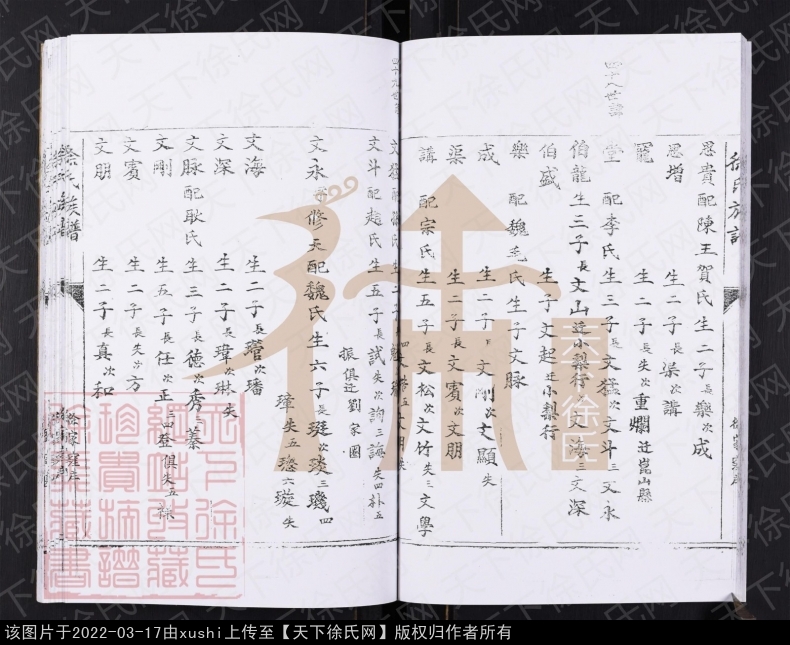 徐氏族譜
四十八世譜
恩貴配陳王賀氏生二子長樂次成
恩增 生二子長渠次講
寵 生二子長失次重爛遷崑山縣
堂 配李氏生三子長文猛次文斗三文永
伯龍生三子長文山遷小梨行次文海三文深
伯盛 生子文起遷小梨行
樂 配魏 氏生子文脉
成 生二子長文剛次文顯失
渠 生二子長文賓次文朋
講 配宗氏生五子長文松次文竹失三文學
四文 五文明失
四十九世
文猛配 氏生二子長
文斗配趙氏生五子長試失次詢 誨失四朴五
振俱遷劉家圈
文永字修天配魏氏生六子長珽次琰三璣四
璋失五璁六璇失
文海 生二子長璿次璠
文深 生二子長瑋次琳失
文脉配耿氏生三子長德次秀三蓁
文剛 生五子長任次正
三四登俱失五
文賓 生二子長失次方
文朋 生二子長真次和
徐氏族譜
天下徐氏網
秦徐臣
天下徐氏
珍貴
该图片于2022-03-17由xushi上传至【天下徐氏网】版权归作者所有